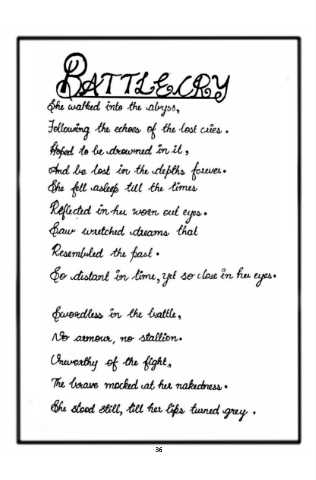 BATTLECRY
She walked into the abyss,
Following the echoes of the lost cries.
Hoped to be drowned in it,
And be lost in the depths forever.
She fell asleep till the times
Reflected in her worn out eyes.
Saw wretched dreams that
Resembled the past.
So distant in time, yet so close in her eyes.
Swordless in the battle,
No armour, no stallion.
Unworthy of the fight,
The brave mocked at her nakedness.
She stood still, till her lips turned grey.
36